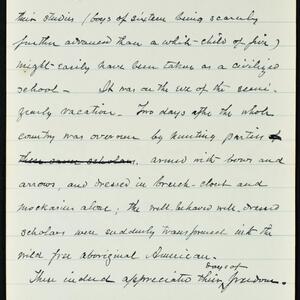 their studies (boys of sixteen being scarcely
further advanced than a white child of five)
might easily have been taken as a civilized
school — It was on the eve of the semi-
yearly vacation. Two days after the whole
country was overrun by hunting parties of
these same scholars, armed with bows and
arrows, and dressed in breech-clout and
mockasins alone; the well behaved well dressed
scholars were suddenly transformed into the
wild free aboriginal American.
days of
They indeed appreciate their freedom.